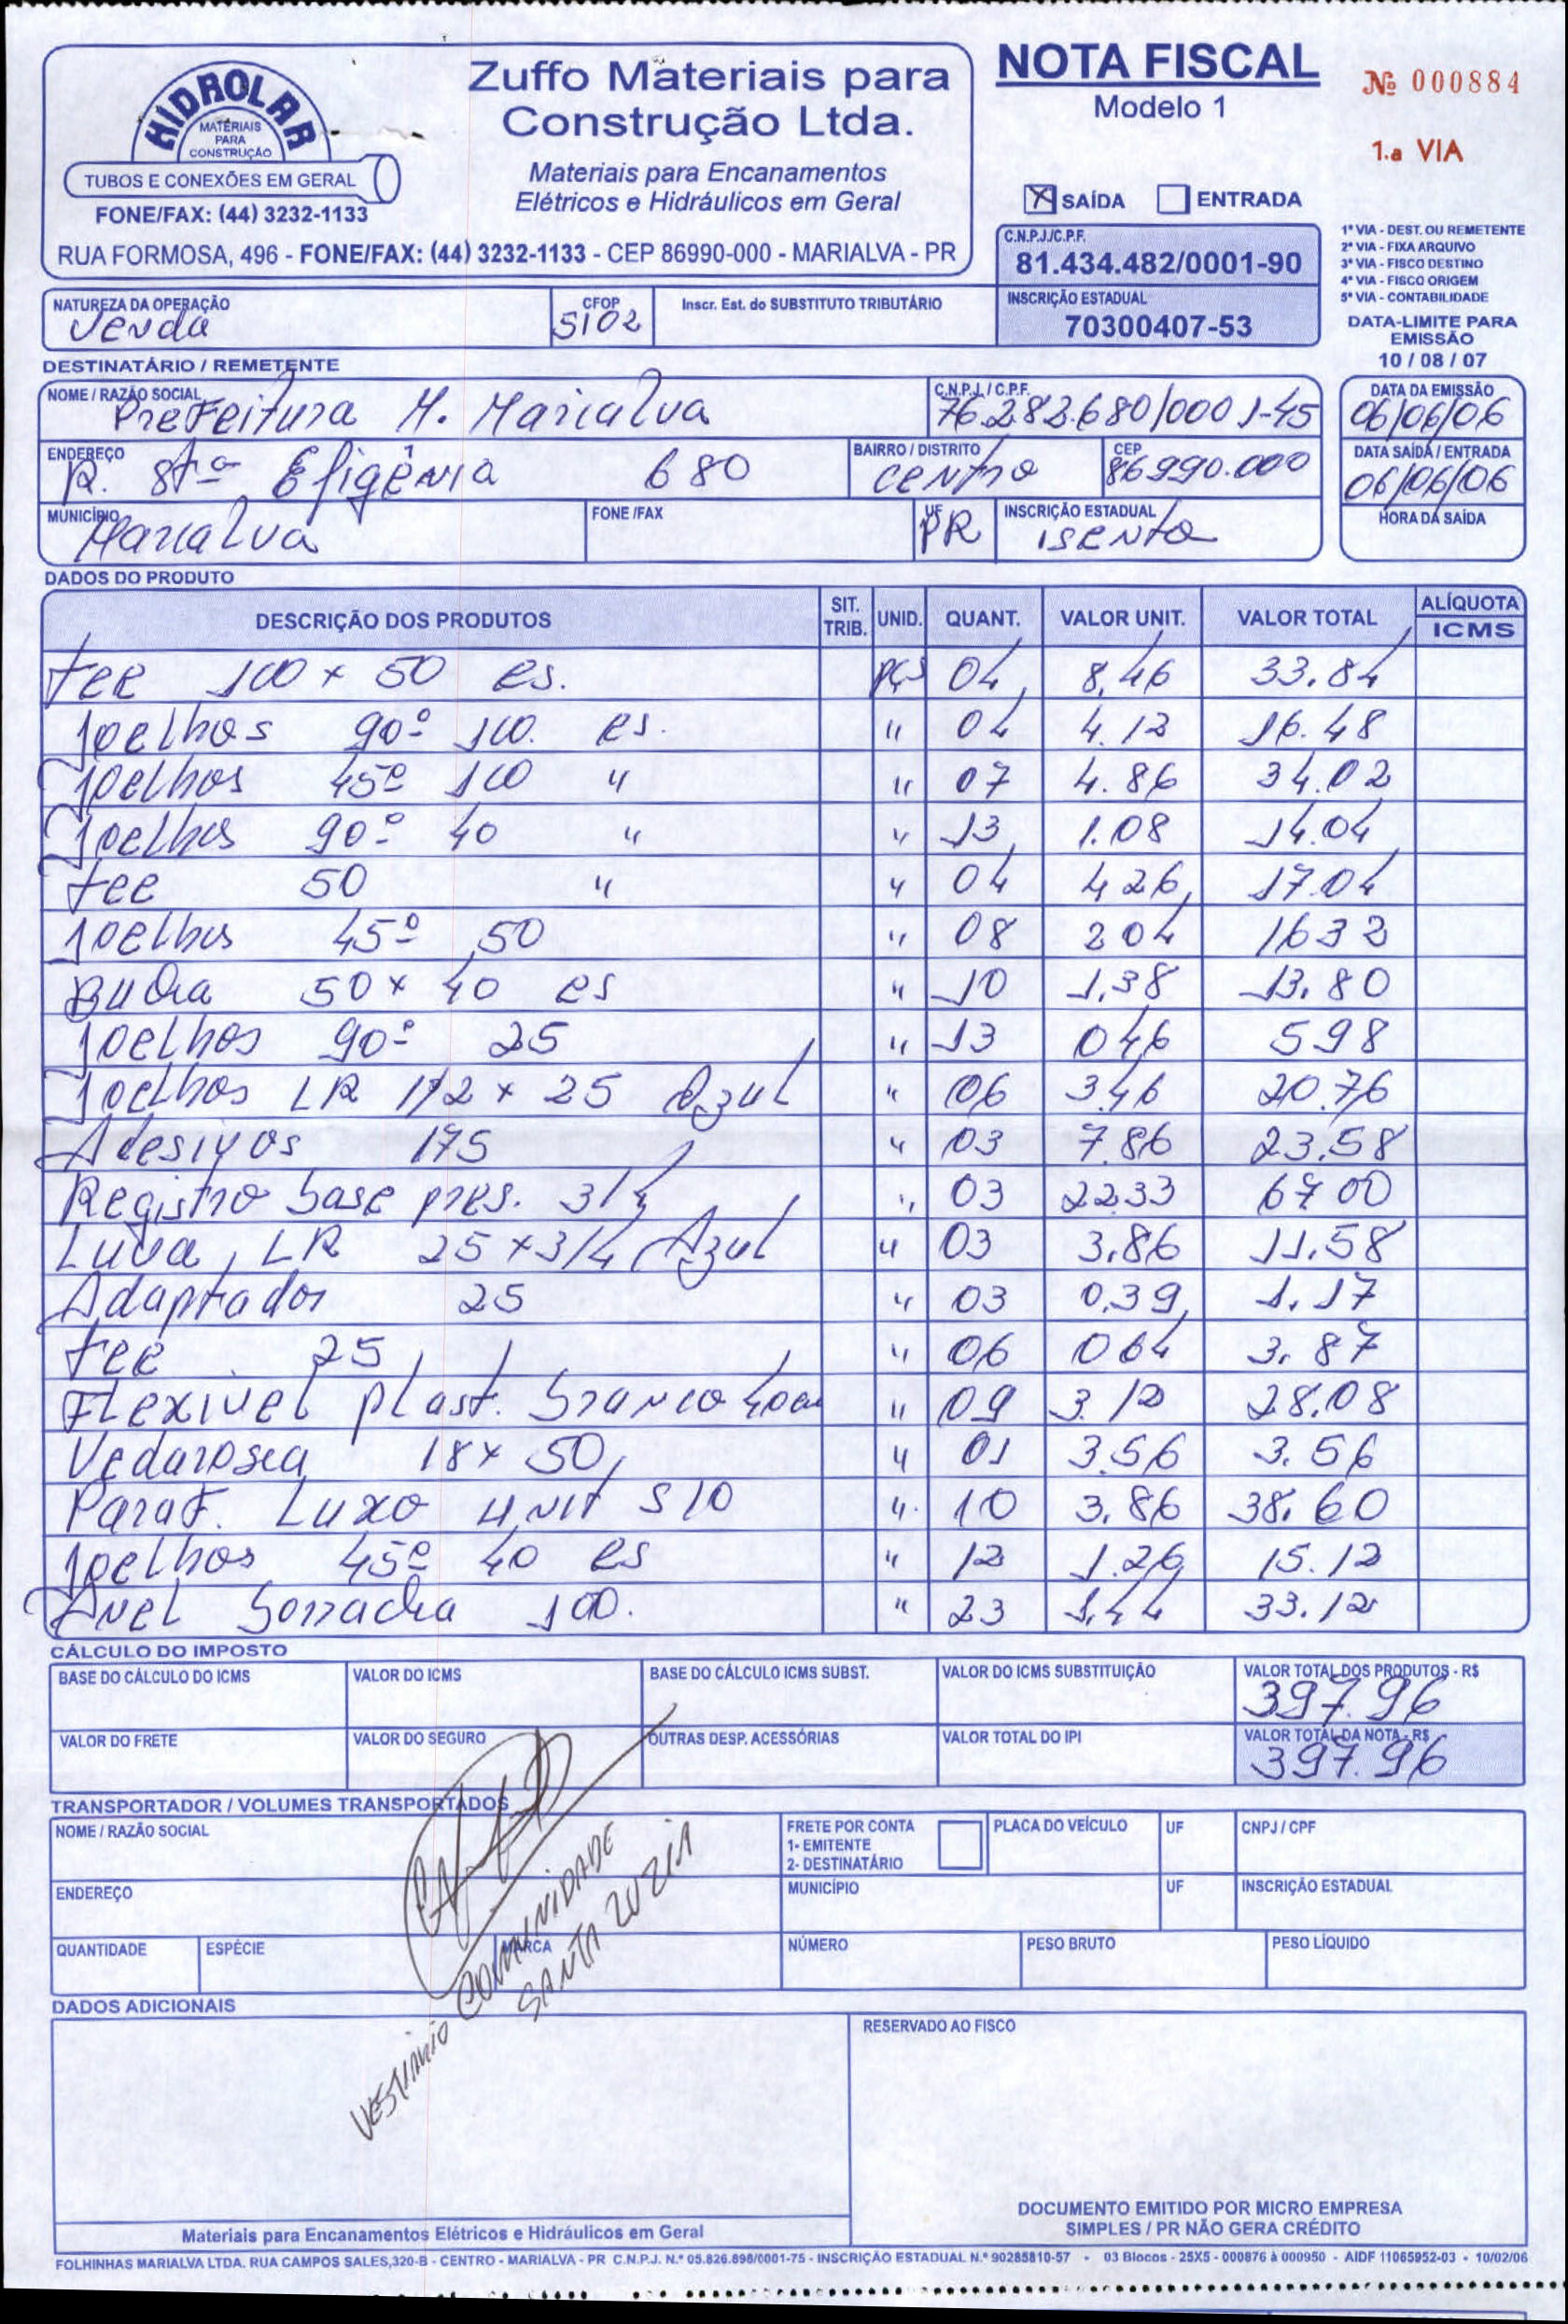 HIDROLAR
MATERIAIS
PARA
CONSTRUÇÃO
TUBOS E CONEXÕES EM GERAL
FONE/FAX: (44) 3232-1133
Zuffo Materiais para
Construção Ltda.
Materiais para Encanamentos
Elétricos e Hidráulicos em Geral
RUA FORMOSA, 496 - FONE/FAX: (44) 3232-1133 - CEP 86990-000 - MARIALVA - PR
NOTA FISCAL
Modelo 1
Nº 000884
1.a VIA
X SAÍDA ENTRADA
C.N.P.J./C.P.F.
81.434.482/0001-90
INSCRIÇÃO ESTADUAL
70300407-53
1ª VIA - DEST. OU REMETENTE
2ª VIA - FIXA ARQUIVO
3ª VIA - FISCO DESTINO
4ª VIA - FISCO ORIGEM
5ª VIA - CONTABILIDADE
DATA-LIMITE PARA
EMISSÃO
10 / 08 / 07
NATUREZA DA OPERAÇÃO CFOP Inscr. Est. do SUBSTITUTO TRIBUTÁRIO
Venda 5102
DESTINATÁRIO / REMETENTE
NOME / RAZÃO SOCIAL C.N.P.J. / C.P.F. DATA DA EMISSÃO
Prefeitura M. Marialva 76.282.680/0001-45 06/06/06
ENDEREÇO BAIRRO / DISTRITO CEP DATA SAÍDA / ENTRADA
R. Stª Efigênia 680 centro 86990.000 06/06/06
MUNICÍPIO FONE /FAX UF INSCRIÇÃO ESTADUAL HORA DA SAÍDA
Marialva PR isento
DADOS DO PRODUTO
DESCRIÇÃO DOS PRODUTOS SIT. TRIB. UNID. QUANT. VALOR UNIT. VALOR TOTAL ALÍQUOTA ICMS
tee 100 x 50 es. pçs 04 8,46 33.84
Joelhos 90º 100. es. " 04 4.12 16.48
Joelhos 45º 100 " " 07 4.86 34.02
Joelhos 90º 40 " " 13 1.08 14.04
tee 50 " " 04 4 26 17.04
Joelhos 45º 50 " 08 2 04 16 32
Bucha 50 x 40 es " 10 1,38 13.80
Joelhos 90º 25 " 13 0 46 5 98
Joelhos LR 1/2 x 25 Azul " 06 3.46 20.76
Adesivos 175 " 03 7.86 23.58
Registro base pres. 3/4 " 03 22 33 67 00
Luva LR 25 x 3/4 Azul " 03 3.86 11.58
Adaptador 25 " 03 0,39 1.17
tee 25 " 06 0 64 3.87
Flexivel plast. branco 40cm " 09 3.12 28.08
Vedarosca 18 x 50 " 01 3.56 3.56
Paraf. Luxo unit S10 " 10 3.86 38.60
Joelhos 45º 40 es " 12 1.26 15.12
Anel borracha 100. " 23 1,44 33.12
CÁLCULO DO IMPOSTO
BASE DO CÁLCULO DO ICMS VALOR DO ICMS BASE DO CÁLCULO ICMS SUBST. VALOR DO ICMS SUBSTITUIÇÃO VALOR TOTAL DOS PRODUTOS - R$
397.96
VALOR DO FRETE VALOR DO SEGURO OUTRAS DESP. ACESSÓRIAS VALOR TOTAL DO IPI VALOR TOTAL DA NOTA - R$
397.96
TRANSPORTADOR / VOLUMES TRANSPORTADOS
NOME / RAZÃO SOCIAL FRETE POR CONTA PLACA DO VEÍCULO UF CNPJ / CPF
1- EMITENTE
2- DESTINATÁRIO
ENDEREÇO MUNICÍPIO UF INSCRIÇÃO ESTADUAL
QUANTIDADE ESPÉCIE MARCA NÚMERO PESO BRUTO PESO LÍQUIDO
COMUNIDADE
SANTA LUZIA
DADOS ADICIONAIS
RESERVADO AO FISCO
DOCUMENTO EMITIDO POR MICRO EMPRESA
SIMPLES / PR NÃO GERA CRÉDITO
Materiais para Encanamentos Elétricos e Hidráulicos em Geral
FOLHINHAS MARIALVA LTDA. RUA CAMPOS SALES,320-B - CENTRO - MARIALVA - PR C.N.P.J. N.º 05.826.898/0001-75 - INSCRIÇÃO ESTADUAL N.º 90285810-57 - 03 Blocos - 25X5 - 000876 à 000950 - AIDF 11065952-03 - 10/02/06